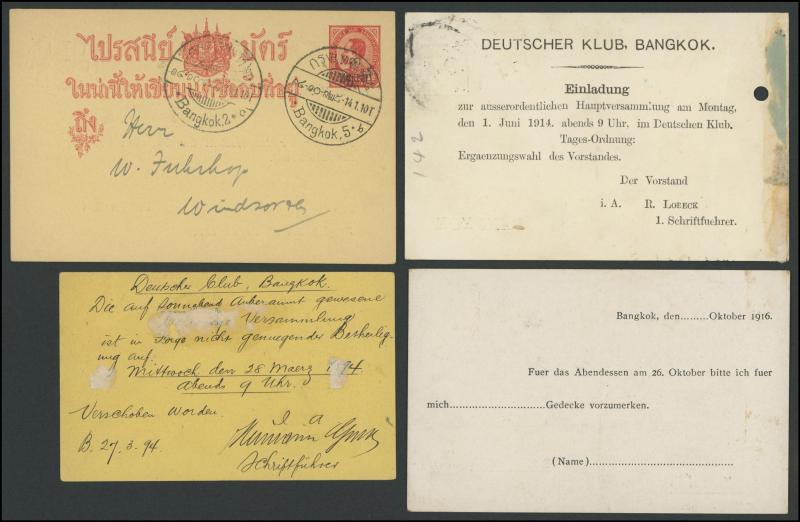 ไปรสนีย์ บัตร์
ในน่านี้ให้เขียน
ถึง
Bangkok.2
กรุงเทพฯ
14.1.10T
Bangkok.5.b
Herr
W. Fuhrhop
Windsor
DEUTSCHER KLUB, BANGKOK.
Einladung
zur ausserordentlichen Hauptversammlung am Montag,
den 1. Juni 1914. abends 9 Uhr, im Deutschen Klub.
Tages-Ordnung:
Ergaenzungswahl des Vorstandes.
Der Vorstand
i. A. R. LOBECK
1. Schriftfuehrer.
142
Deutscher Club, Bangkok.
Die auf Sonnabend Anberaumt gewesene
Versammlung
ist in Folge nicht genuegender Betheilig-
ung auf:
Mittwoch den 28 Maerz 94
Abends 9 Uhr.
Verschoben worden.
I. A
B. 27.3.94.
Hermann
Schriftführer
Bangkok, den.........Oktober 1916.
Fuer das Abendessen am 26. Oktober bitte ich fuer
mich..............................Gedecke vorzumerken.
(Name)..............................